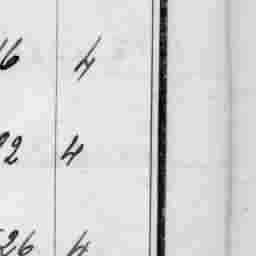 16 4
22 4
26 4